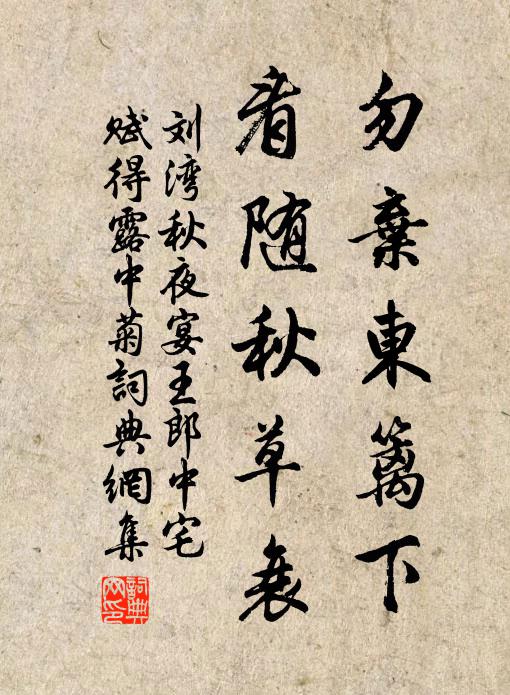 勿棄東籬下
看随秋草衰
刘湾秋夜宴王郎中宅
赋得露中菊詞典網集
詞典網印